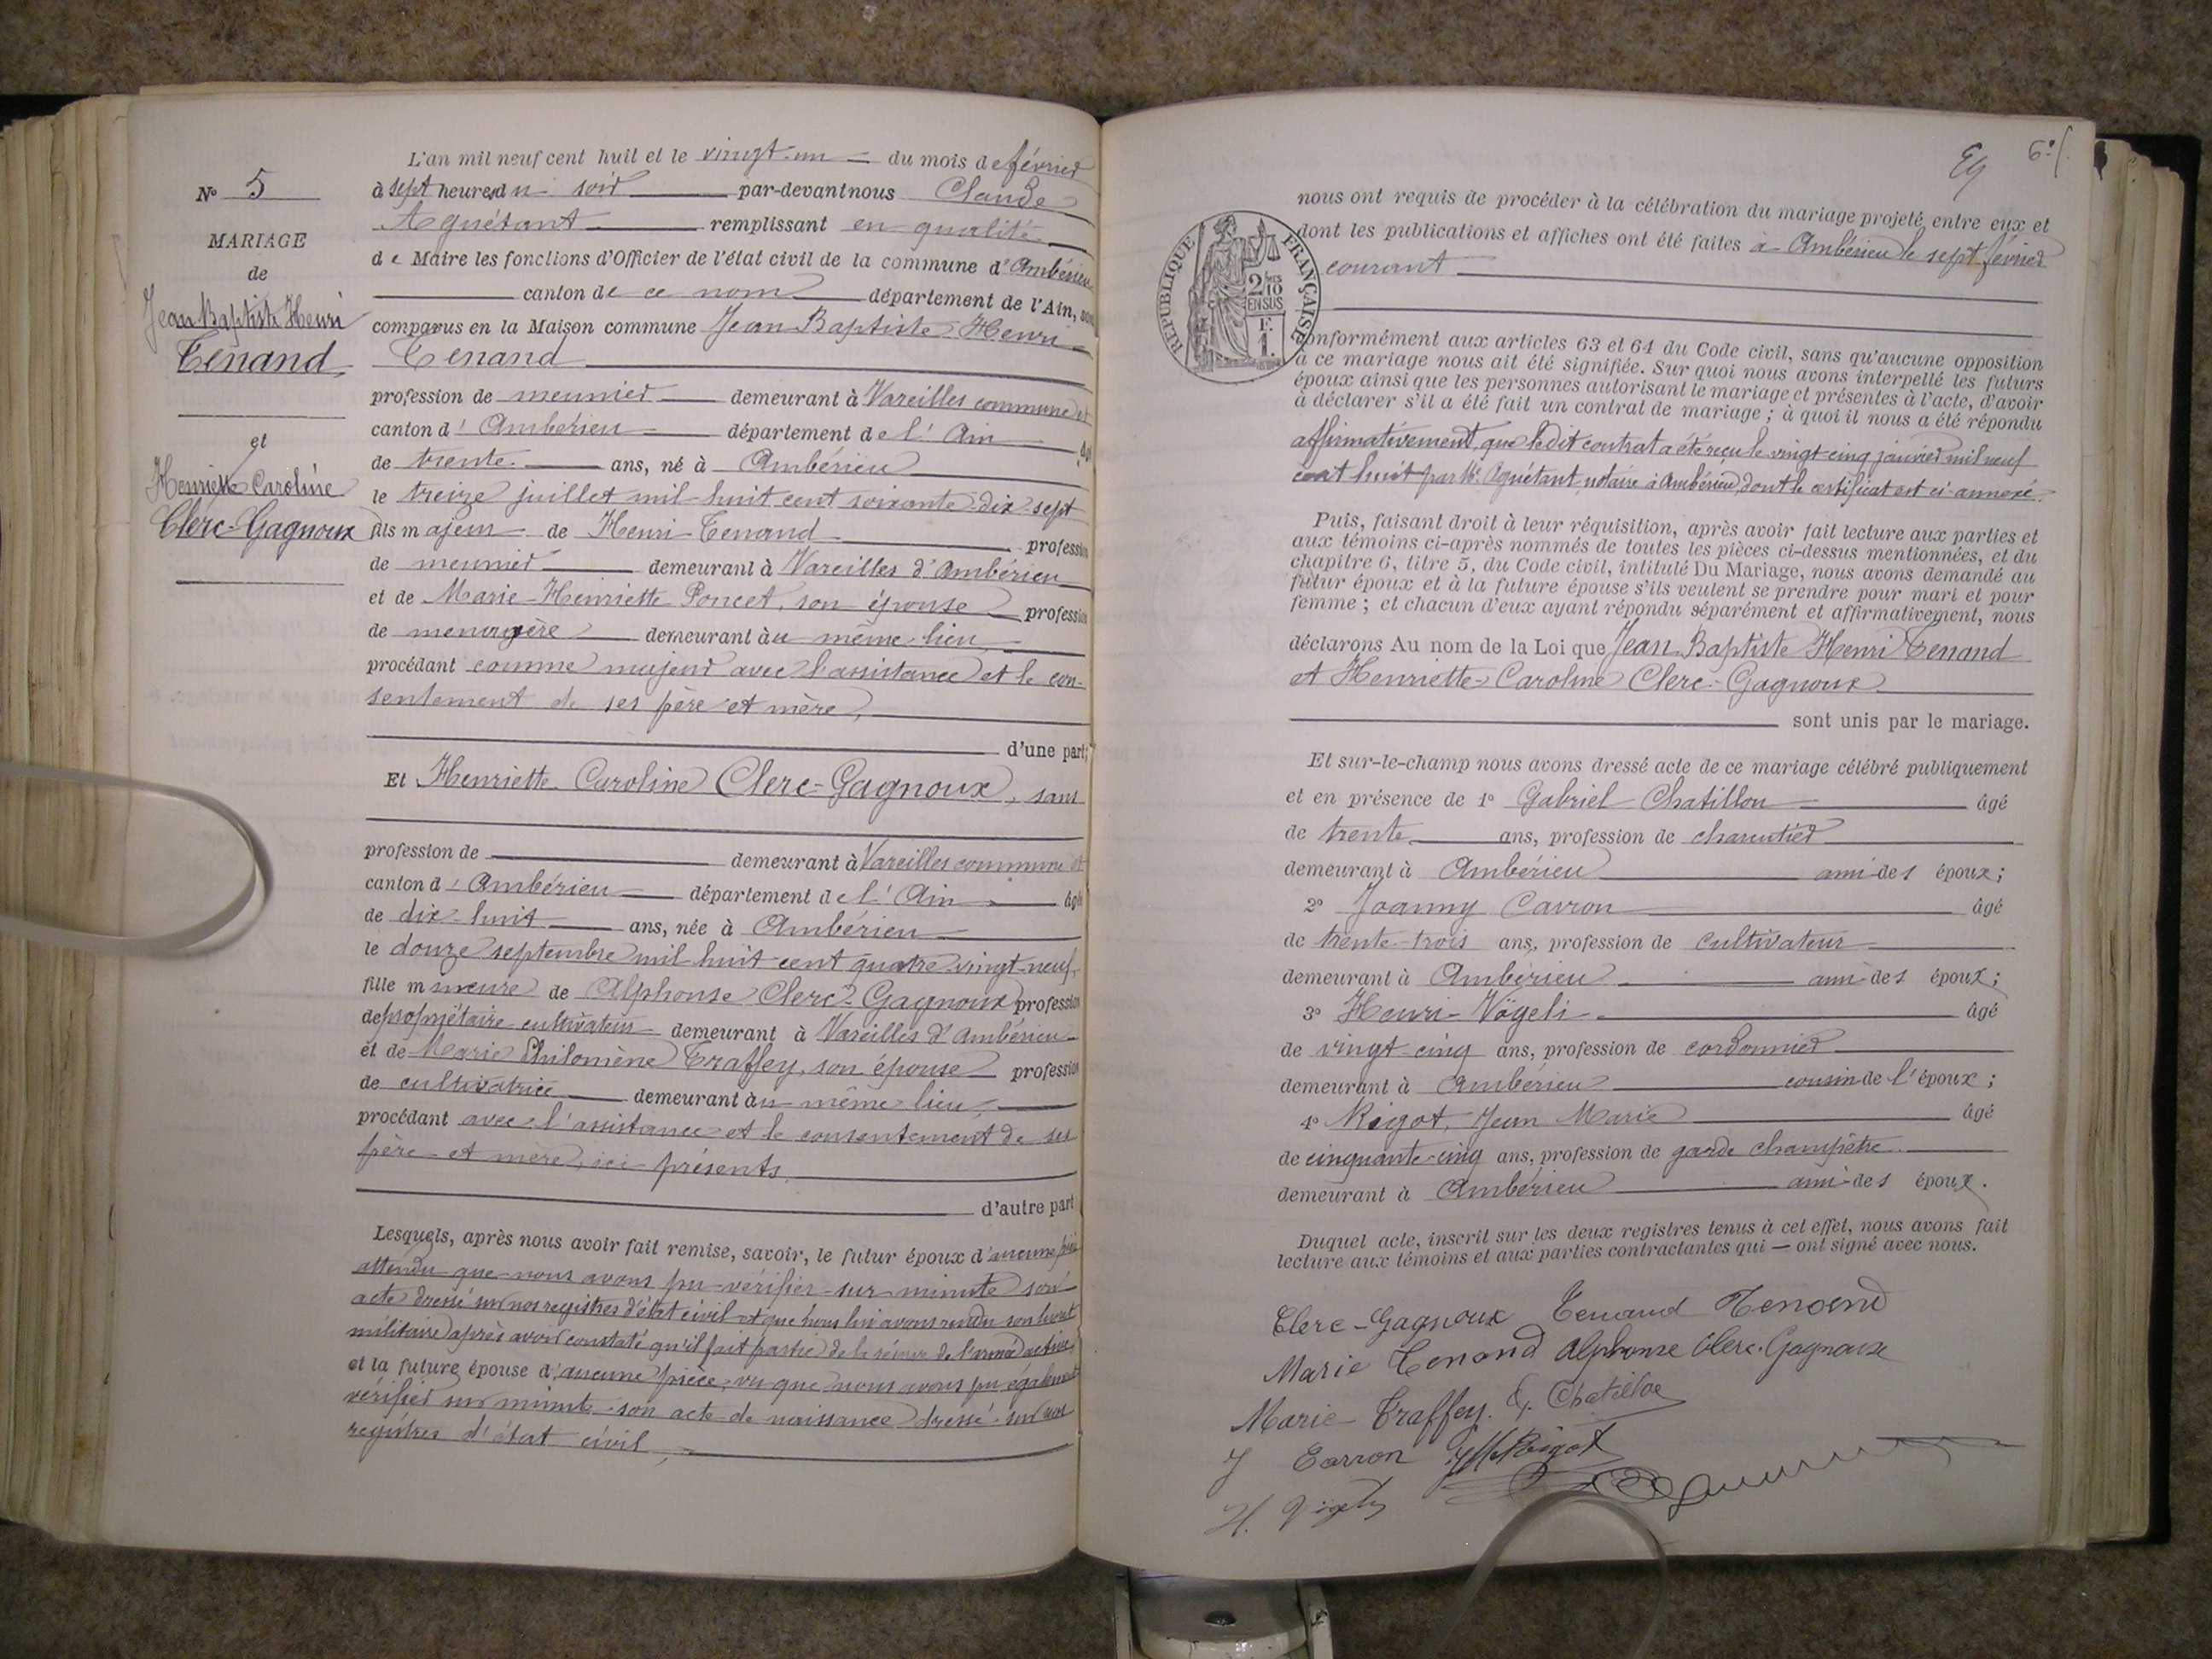 N° 5
MARIAGE
de
Jean Baptiste Henri
Tenand
et
Henriette Caroline
Clerc-Gagnoux
L'an mil neuf cent huit et le vingt-un du mois de février
à sept heures du soir par-devant nous Claude
Aguétant remplissant en qualité
de Maire les fonctions d'Officier de l'état civil de la commune d'Ambérieu
canton de ce nom département de l'Ain, sont
comparus en la Maison commune Jean-Baptiste Henri
Tenand
profession de meunier demeurant à Vareilles commune et
canton d'Ambérieu département de l'Ain âgé
de trente ans, né à Ambérieu
le treize juillet mil-huit cent soixante-dix-sept
fils majeur de Henri Tenand profession
de meunier demeurant à Vareilles d'Ambérieu
et de Marie-Henriette Poncet, son épouse profession
de menagère demeurant au même lieu,
procédant comme majeur avec l'assistance et le con-
sentement de ses père et mère,
d'une part;
Et Henriette Caroline Clerc-Gagnoux, sans
profession de demeurant à Vareilles commune et
canton d'Ambérieu département de l'Ain âgée
de dix-huit ans, née à Ambérieu
le douze septembre mil-huit-cent quatre-vingt-neuf,
fille mineure de Alphonse Clerc-Gagnoux profession
de propriétaire-cultivateur demeurant à Vareilles d'Ambérieu
et de Marie Philomène Traffey, son épouse profession
de cultivatrice demeurant au même lieu,
procédant avec l'assistance et le consentement de ses
père et mère, ici présents,
d'autre part
Lesquels, après nous avoir fait remise, savoir, le futur époux d'aucune pièce
attendu que nous avons pu vérifier sur minute son
acte dressé sur nos registres d'état civil et que nous lui avons rendu son livret
militaire après avoir constaté qu'il fait partie de la réserve de l'armée active
et la future épouse d'aucune pièce, vu que nous avons pu également
vérifier sur minute son acte de naissance dressé sur nos
registres d'état civil,
6
nous ont requis de procéder à la célébration du mariage projeté entre eux et
dont les publications et affiches ont été faites à Ambérieu le sept février
courant
RÉPUBLIQUE FRANÇAISE
2/10
EN SUS
F.
1.
conformément aux articles 63 et 64 du Code civil, sans qu'aucune opposition
à ce mariage nous ait été signifiée. Sur quoi nous avons interpellé les futurs
époux ainsi que les personnes autorisant le mariage et présentes à l'acte, d'avoir
à déclarer s'il a été fait un contrat de mariage ; à quoi il nous a été répondu
affirmativement, que ledit contrat a été reçu le vingt cinq janvier mil neuf
cent huit par Me Aguétant, notaire à Ambérieu, dont le certificat est ci-annexé.
Puis, faisant droit à leur réquisition, après avoir fait lecture aux parties et
aux témoins ci-après nommés de toutes les pièces ci-dessus mentionnées, et du
chapitre 6, titre 5, du Code civil, intitulé Du Mariage, nous avons demandé au
futur époux et à la future épouse s'ils veulent se prendre pour mari et pour
femme ; et chacun d'eux ayant répondu séparément et affirmativement, nous
déclarons Au nom de la Loi que Jean Baptiste Henri Tenand
et Henriette-Caroline Clerc-Gagnoux
sont unis par le mariage.
Et sur-le-champ nous avons dressé acte de ce mariage célébré publiquement
et en présence de 1° Gabriel Chatillon âgé
de trente ans, profession de charcutier
demeurant à Ambérieu ami des époux;
2° Joanny Carron âgé
de trente-trois ans, profession de cultivateur
demeurant à Ambérieu ami des époux;
3° Henri Vögeli âgé
de vingt-cinq ans, profession de cordonnier
demeurant à Ambérieu cousin de l'époux;
4° Rigot, Jean Marie âgé
de cinquante-cinq ans, profession de garde champêtre
demeurant à Ambérieu ami des époux.
Duquel acte, inscrit sur les deux registres tenus à cet effet, nous avons fait
lecture aux témoins et aux parties contractantes qui — ont signé avec nous.
Clerc-Gagnoux Tenand Tenand
Marie Tenand Alphonse Clerc-Gagnoux
Marie Traffey. G. Chatillon
J Carron JM Rigot
H. Vögeli